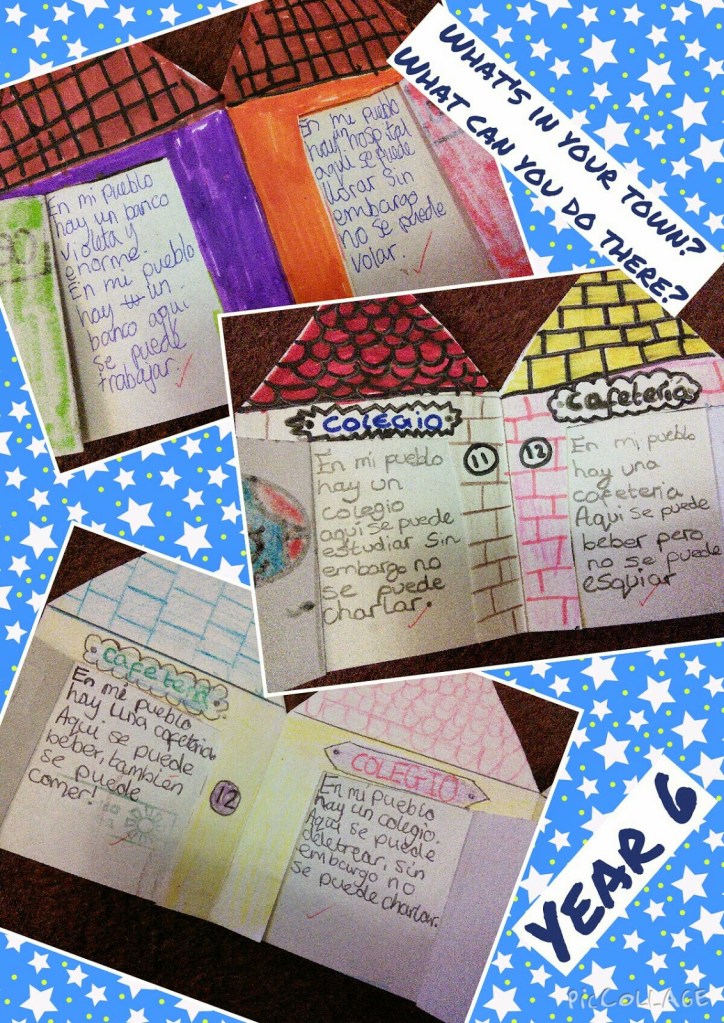 WHAT'S IN YOUR TOWN?
WHAT CAN YOU DO THERE?
En mi pueblo
hay un banco
violeta y
enorme.
En mi pueblo
hay un
banco aqui
se puede
trabajar.
En me pueblo
un
hay hospital
aqui se puede
llorar sin
embargo
no se puede
volar.
COLEGIO
11
En mi pueblo
hay un
colegio
aquí se puede
estudiar sin
embargo no
se puede
charlar.
Cafetería
12
En mi pueblo
hay una
cafeteria
Aquí se puede
beber pero
no se puede
esquiar
Cafeteria
12
En mi pueblo
hay una cafeteria.
Aqui se puede
beber, también
se puede
comer!
COLEGIO
En mi pueblo
hay un colegio.
Aqui se puede
deletrear, sin
embargo no
se puede charlar.
YEAR 6
PicCOLLAGE